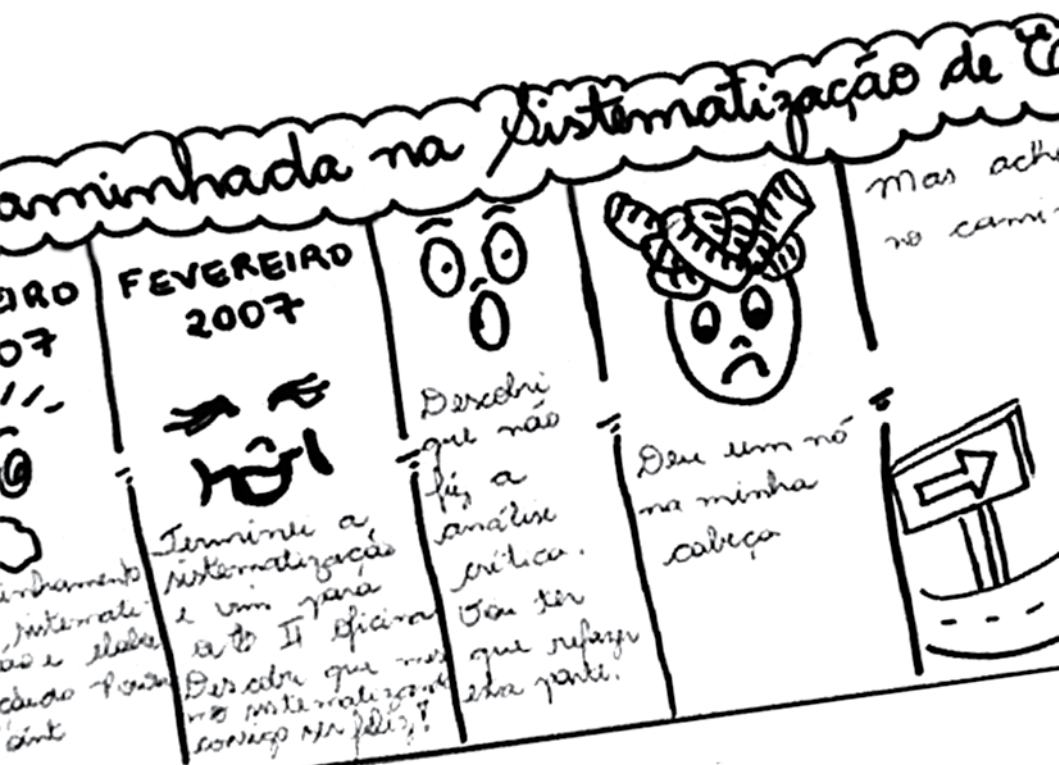 aminhada na Sistematização de
EIRO
07
inhamento
sistemati-
ão e elabo
FEVEREIRO
2007
Terminei a
sistematização
e vim para
a II Oficina
Descobri que mes
mo sistematizando
consigo ser feliz!
Descobri
que não
fiz a
análise
crítica.
Vou ter
que refazer
esta parte.
Deu um nó
na minha
cabeça
Mas ach
no cami